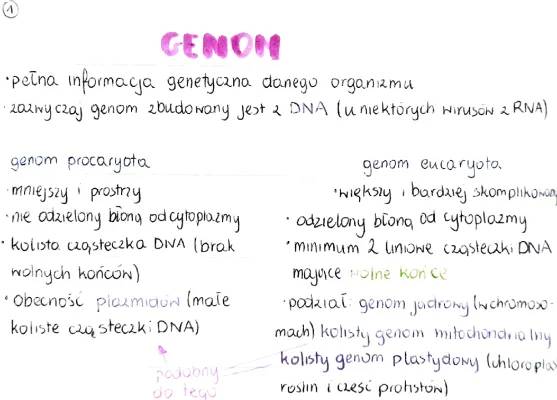 1
GENOM
·pełna informacja genetyczna danego organizmu
·zazwyczaj genom zbudowany jest z DNA (u niektórych wirusów z RNA)
genom procaryota
·mniejszy i prostrzy
·nie odzielony błoną od cytoplazmy
·kolista cząsteczka DNA (brak
wolnych końców)
·Obecność plazmidów (małe
koliste cząsteczki DNA)
podobny
do tego
genom eucaryota
·większy i bardziej skomplikowany
·odzielony błoną od cytoplazmy
·minimum 2 liniowe cząsteczki DNA
mające wolne końce
·podział: genom jądrowy (w chromoso-
mach) kolisty genom mitochondrialny
kolisty genom plastydowy (chloroplas
roślin i część protistów)